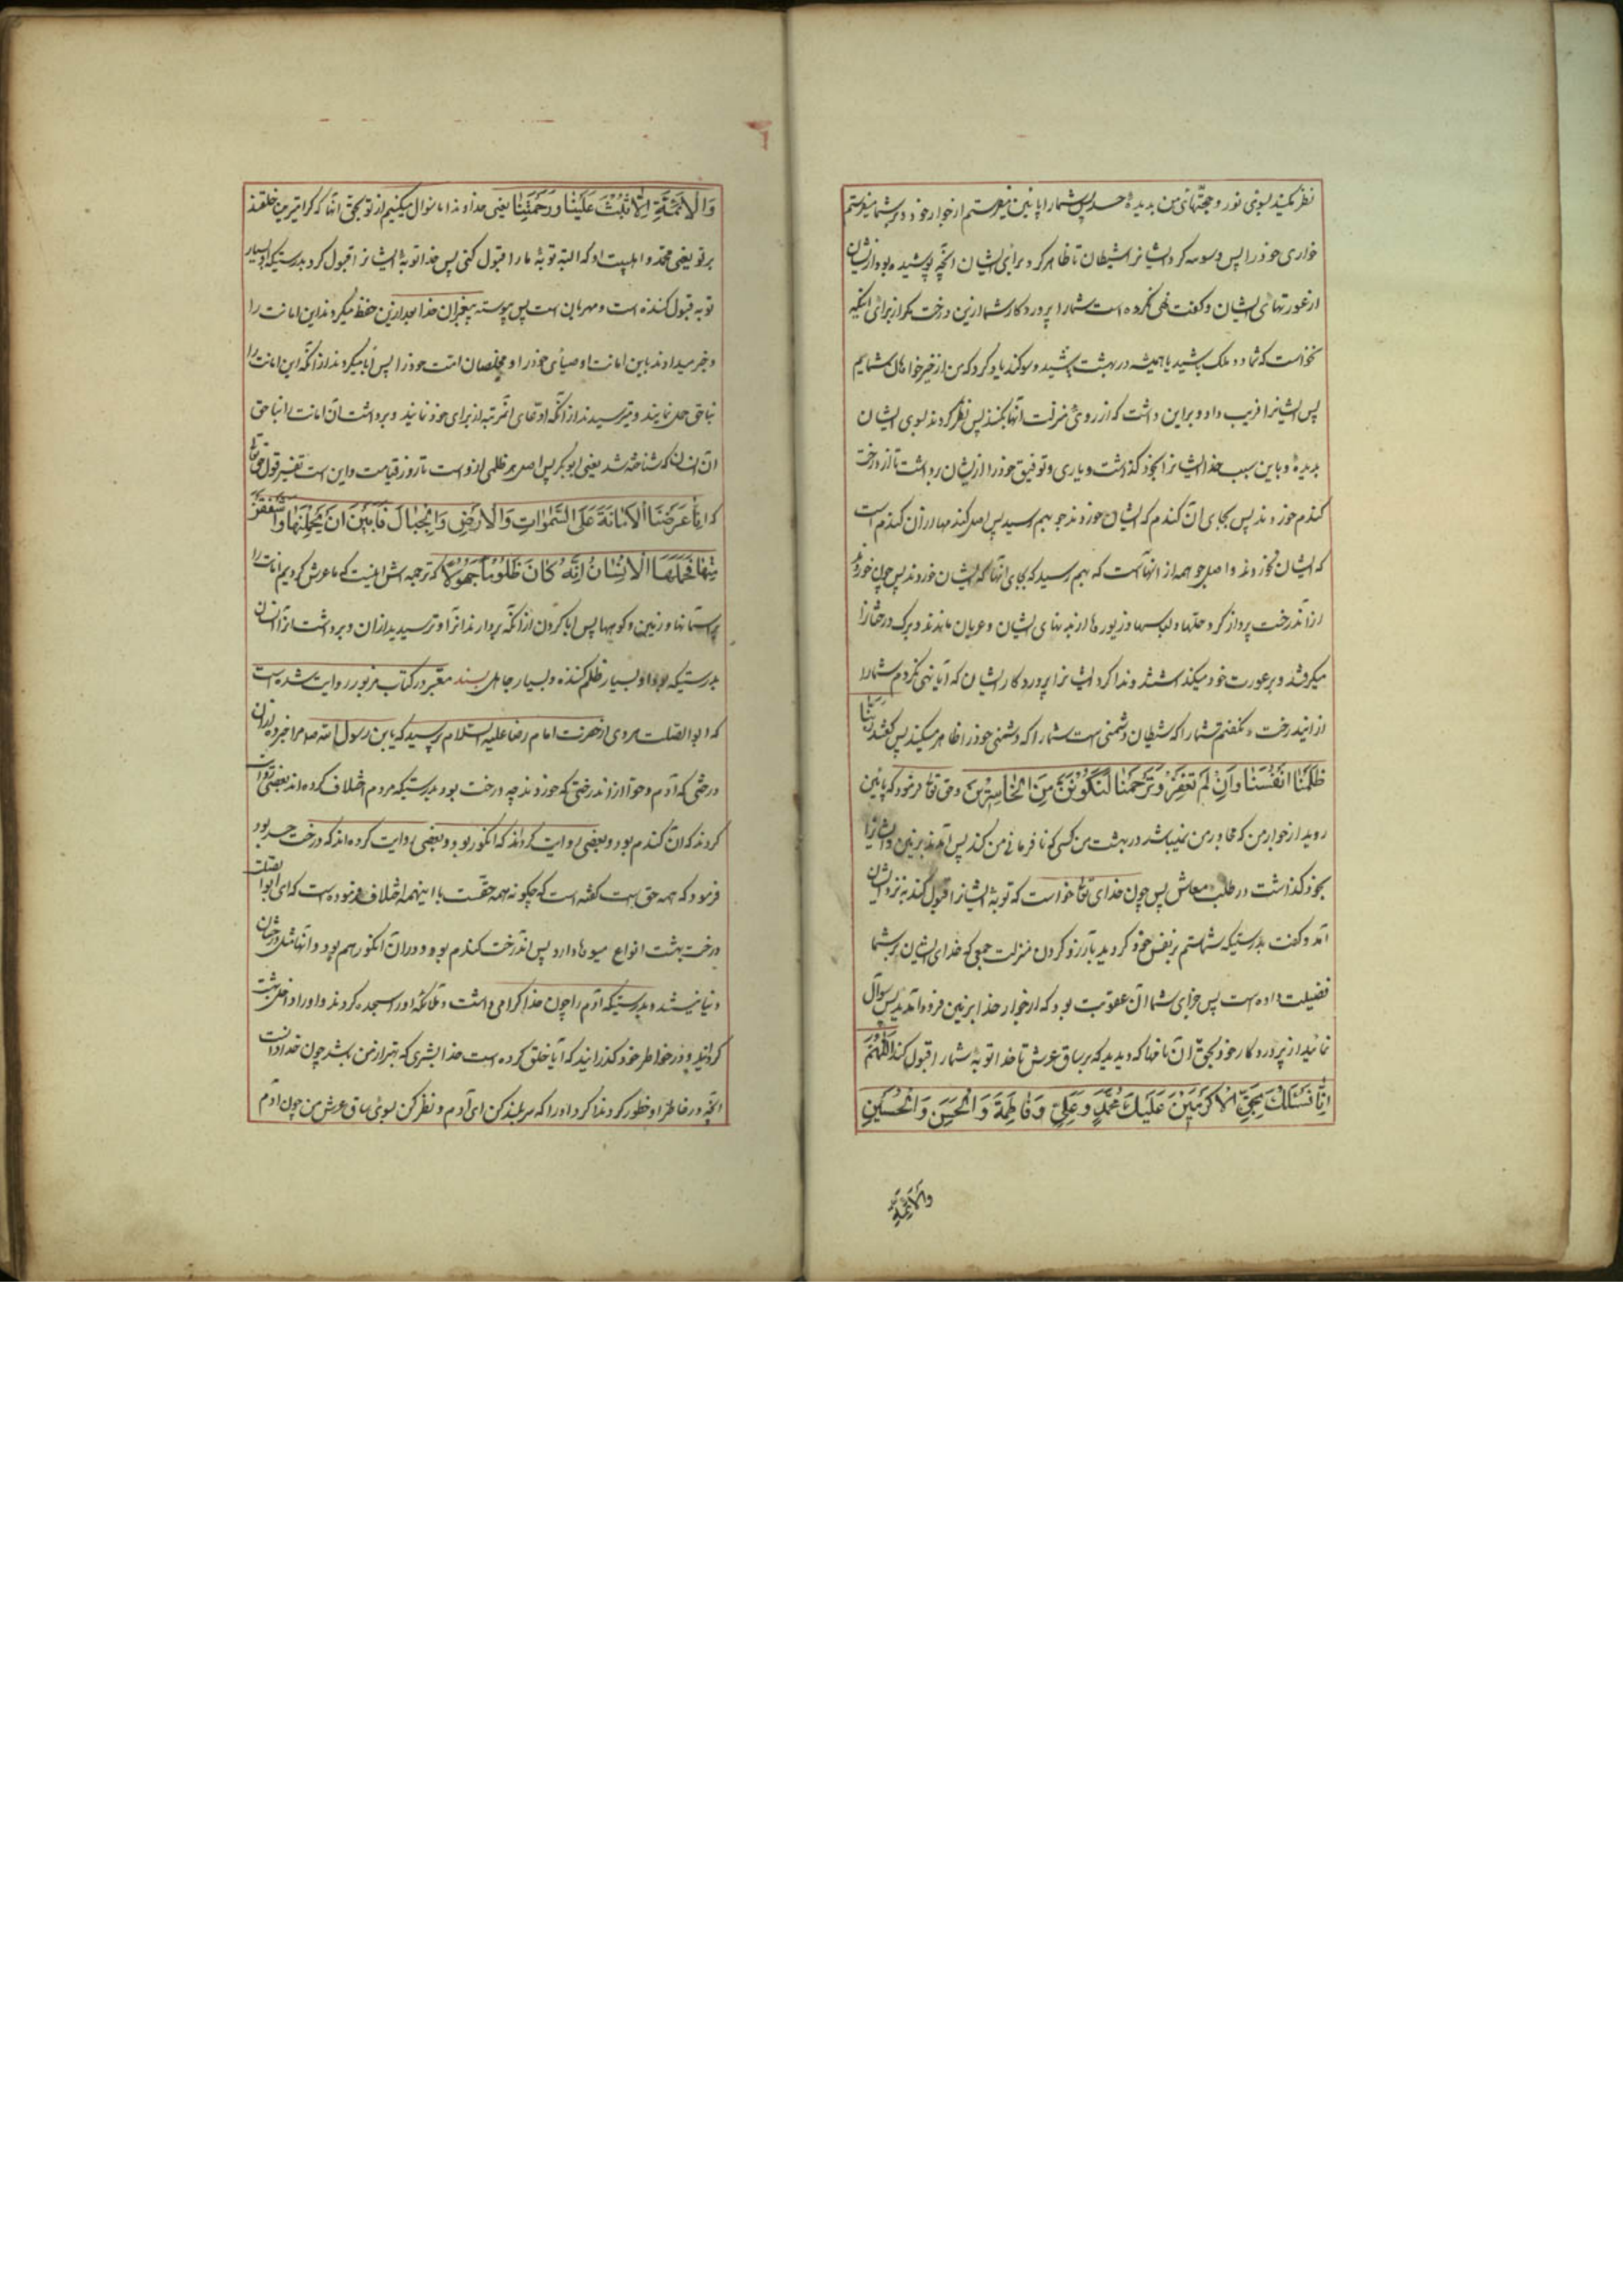 نظر مکنید بسوی نور و حجّتهای من بدیدهٔ حسد پس شما را پائین میفرستم از جوار خود و بر شما میفرستم
خواری خود را پس وسوسه کرد ایشانرا شیطان تا ظاهر کرد برای ایشان آنچه پوشیده بود از ایشان
از عورتهای ایشان و گفت نهی نکرده است شما را پروردگار شما ازین درخت مگر از برای اینکه
نخواست که شما دو ملک باشید یا همیشه در بهشت باشید و سوکند یاد کرد که من از خیرخواهان شمایم
پس ایشانرا فریب داد و براین داشت که آرزوی منزلت آنها بکنند پس نظر کردند بسوی ایشان
بدیدهٔ و باین سبب خدا ایشانرا بخود گذاشت و یاری و توفیق خود را از ایشان برداشت تا از درخت
کندم خوردند پس بجای آن کندم که ایشان خوردند جو بهم رسید پس اصل کندمها از آن کندم است
که ایشان نخوردند و اصل جو همه از آنهاست که بهم رسید که بجای آنها که ایشان خوردند پس چون خوردند
از آندرخت پرواز کرد حلّها و لباسها و زیورها از بدنهای ایشان و عریان ماندند و برک درختانرا
میکرفتند و بر عورت خود میکذاشتند و ندا کرد ایشانرا پروردکار ایشان که آیا نهی نکردم شما را
از ایندرخت و نکفتم شما را که شیطان دشمنی است شما را که دشمنی خود را ظاهر میکند پس گفتند ربّنا
ظَلَمْنَا اَنْفُسَنَا وَاِنْ لَمْ تَغْفِرْ وَتَرْحَمْنَا لَنَکُونَنَّ مِنَ الْخَاسِرِینَ و حق تعا فرمود که پائین
روید از جوار من که مجاور من نمیباشد در بهشت من کسی که نافرمانی من کند پس آمدند بزمین و ایشانرا
بخود کذاشت در طلب معاش پس چون خدای تعا خواست که توبهٔ ایشانرا قبول کند به نزد ایشان
آمد و کفت بدرستیکه شما ستم بر نفس خود کردید بآرزو کردن منزلت جمعی که خدا ایشان بر شما
فضیلت داده است پس جزای شما آن عقوبت بود که از جوار خدا بزمین فرود آمدید پس سوال
نمائید از پروردکار خود بحق آن نامها که دیدید که بر ساق عرش تا خدا توبهٔ شما را قبول کند اللّهمّ
اِنّا نَسْئَلُکَ بِحَقِّ الْاَکْرَمِینَ عَلَیْکَ مُحَمَّدٍ وَ عَلِیٍّ وَ فَاطِمَةَ وَ الْحَسَنِ وَ الْحُسَیْنِ
والائمّة
وَالْاَئِمَّةِ اِلّا تُبْتَ عَلَیْنَا وَرَحِمْتَنَا یعنی خداوندا ما سوال میکنیم از تو بحق آنها که کرامیترین خلقند
بر تو یعنی محمّد و اهلبیت او که البته توبهٔ ما را قبول کنی پس خدا توبهٔ ایشانرا قبول کرد بدرستیکه او بسیار
توبه قبول کننده است و مهربان است پس پیوسته پیغمبران خدا بعد ازین حفظ میکردند این امانت را
و خبر میدادند باین امانت اوصیای خود را و مخلصان امّت خود را پس ابا میکردند از آنکه این امانت را
بناحق حمل نمایند و میترسیدند از آنکه ادّعای آنمرتبه از برای خود نمایند و برداشت آن امانت را بناحق
آن انسان که شناخته شد یعنی ابوبکر پس اصل هر ظلمی ازو است تا روز قیامت و این است تفسیر قول حق تعا
که اِنّا عَرَضْنَا الْاَمَانَةَ عَلَی السَّمٰوَاتِ وَالْاَرْضِ وَالْجِبَالِ فَاَبَیْنَ اَنْ یَحْمِلْنَهَا وَاَشْفَقْنَ
مِنْهَا فَحَمَلَهَا الْاِنْسَانُ اِنَّهُ کَانَ ظَلُوماً جَهُولًا که ترجمه اش اینست که ما عرض کردیم امانت را
بر آسمانها و زمین و کوهها پس ابا کردن از آنکه بردارند آنرا و ترسیدند از آن و برداشت آنرا انسان
بدرستیکه بود او بسیار ظلم کننده و بسیار جاهل بسند معتبر در کتاب مزبور روایت شده است
که ابوالصّلت هروی از حضرت امام رضا علیه السلام پرسید که یابن رسول الله مرا خبر ده از آن
درختی که آدم و حوّا از آندرختی که خوردند چه درخت بود بدرستیکه مردم اختلاف کرده اند بعضی روایت
کردند که آن کندم بود و بعضی روایت کرده اند که انکور بود و بعضی روایت کرده اند که درخت حسد بود
فرمود که همه حق است کفته است که چکونه همه حقست با اینهمه اختلاف فرموده است که ای ابوالصّلت
درخت بهشت انواع میوها دارد پس آندرخت کندم بود و در آن انکور هم بود و آنها مثل درختان
دنیا نیستند و بدرستیکه آدم را چون خدا کرامی داشت و ملائکه او را سجده کردند و او را داخل بهشت
کردانید و در خواطر خود کذرانید که آیا خلق کرده است خدا بشری که بهتر از من باشد چون خدا دانست
آنچه در خاطر او خطور کرد ندا کرد او را که سر بلند کن ای آدم و نظر کن بسوی ساق عرش من چون آدم